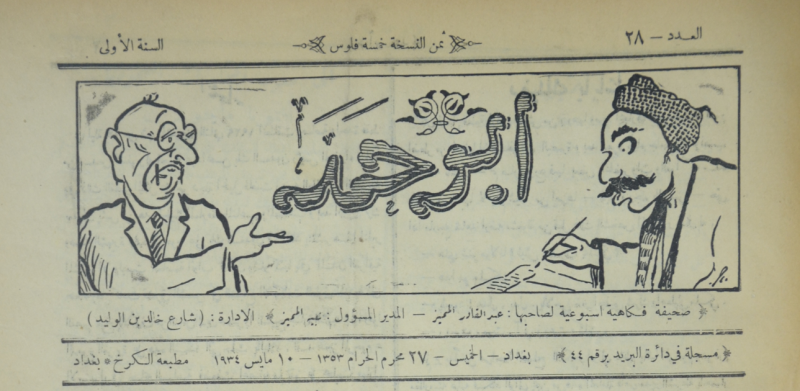 العـدد – ٢٨
ثمن النسخة خمسة فلوس
السنة الأولى
ابو حمد
صحيفة فكاهية اسبوعية لصاحبها : عبدالقادر المميز – المدير المسؤول : المميز الادارة : ( شارع خالد بن الوليد )
مسجلة في دائرة البريد برقم ٤٤ بغداد – الخميس – ٢٧ محرم الحرام ١٣٥٣ – ١٠ مايس ١٩٣٤ مطبعة الكرخ ٥ بغداد